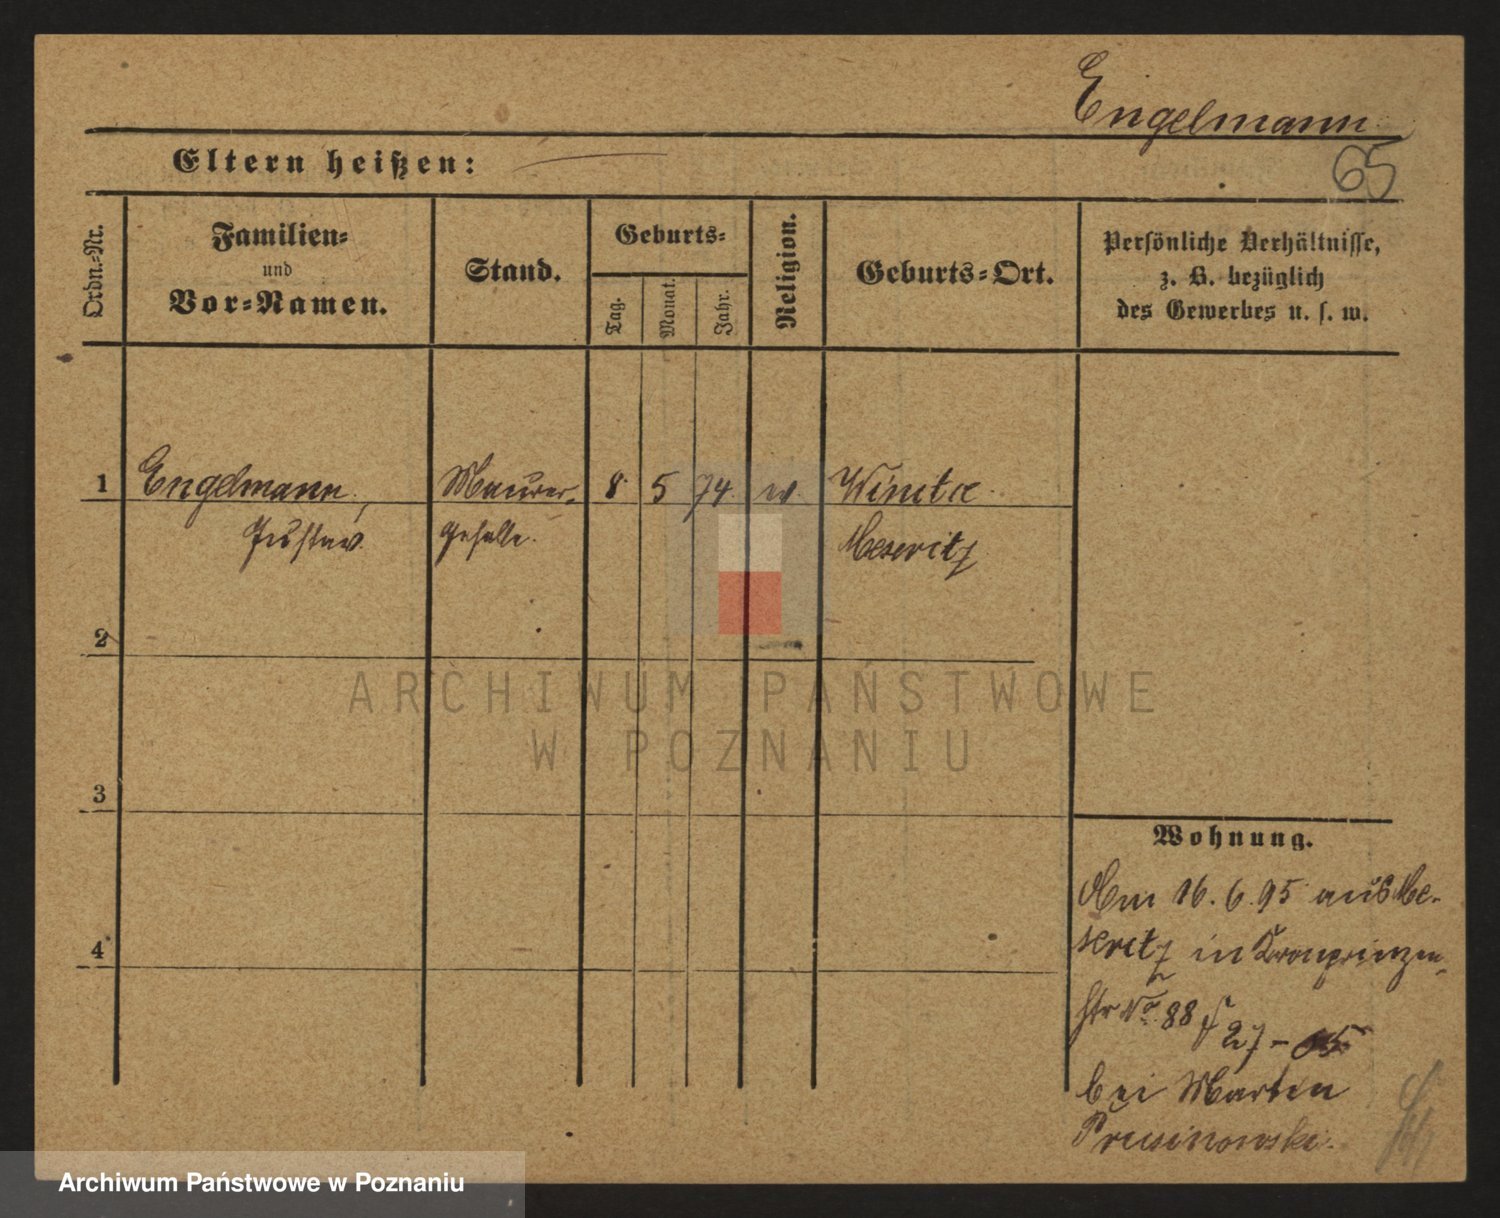 Engelmann
65
Eltern heißen:
Ordn.-Nr.
Familien-
und
Vor-Namen.
Stand.
Geburts-
Tag.
Monat.
Jahr.
Religion.
Geburts-Ort.
Persönliche Verhältnisse,
z. B. bezüglich
des Gewerbes u. s. w.
1 Engelmann, Maurer- 8 5 74 Winitze
Gustav. geselle. Meseritz
2
3
4
Wohnung.
Am 16. 6. 95 aus Me-
seritz in Kronprinzen-
str No. 88
bei Martin
Prusinowski.
ARCHIWUM PAŃSTWOWE
W POZNANIU
Archiwum Państwowe w Poznaniu